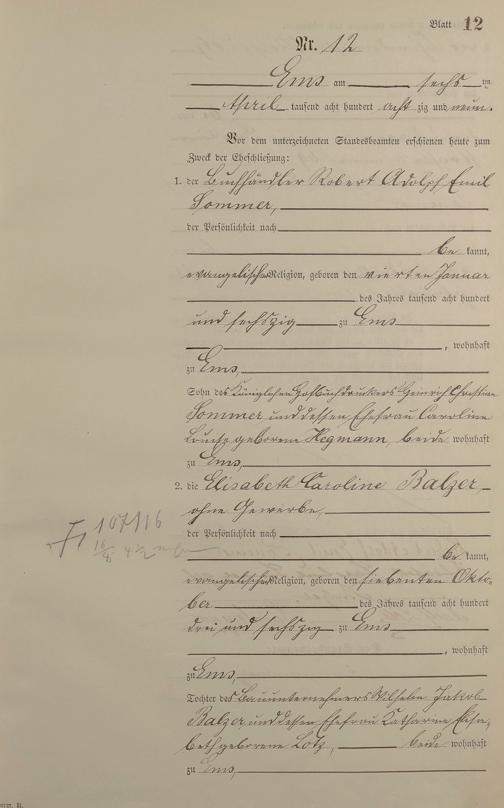 Blatt 12
Nr. 12
Ems am sechs ten
April tausend acht hundert acht zig und neun.
Vor dem unterzeichneten Standesbeamten erschienen heute zum
Zweck der Eheschließung:
1. der Buchhändler Robert Adolph Emil
Sommer,
der Persönlichkeit nach
be kannt,
evangelischer Religion, geboren den vierten Januar
des Jahres tausend acht hundert
und sechszig zu Ems
, wohnhaft
zu Ems,
Sohn des Königlichen Hofbuchdruckers Heinrich Christian
Sommer und dessen Ehefrau Caroline
Louise geborene Hegmann, beide wohnhaft
zu Ems,
2. die Elisabeth Caroline Balzer
ohne Gewerbe,
der Persönlichkeit nach
107116
be kannt,
evangelischer Religion, geboren den siebenten Okto-
ber des Jahres tausend acht hundert
drei und sechszig zu Ems
, wohnhaft
zu Ems,
Tochter des Bauunternehmers Wilhelm Jakob
Balzer, und dessen Ehefrau Katharine Elisa-
beth geborene Lotz, beide wohnhaft
zu Ems,